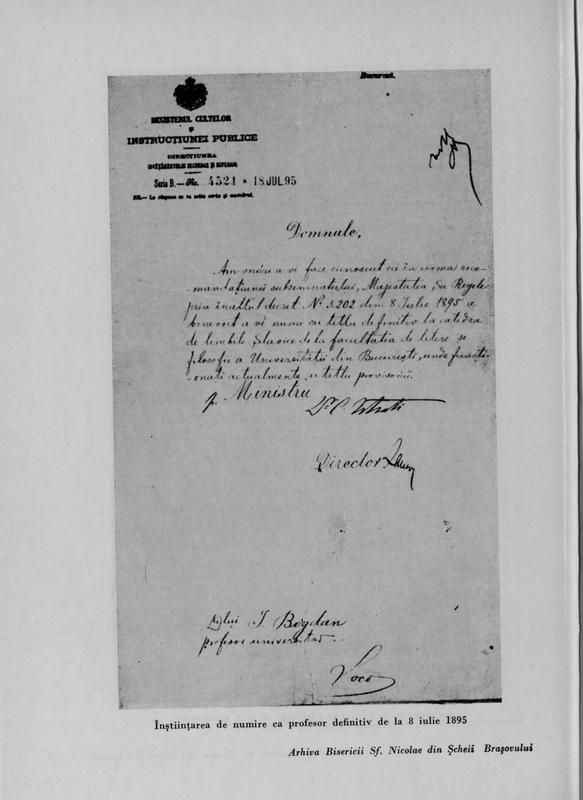 Bucuresci.
MINISTERUL CULTELOR
ȘI
INSTRUCTIUNEI PUBLICE
DIRECTIUNEA
INVĔȚĂMÂNTULUI SECUNDAR ȘI SUPERIOR
Seria B. — No. 4521 * 18 JUL 95
NB. — La rĕspuns se va arăta seria și numĕrul.
Domnule,
Am onóre a vĕ face cunoscut că în urma reco-
mandațiunii subsemnatului, Majestatea Sa Regele
prin înaltul decret No. 3202 din 8 Iulie 1895 a
benevoit a vĕ numi cu titlu definitiv la catedra
de limbile slavice de la facultatea de litere și
filosofie a Universității din București, unde funcți-
onați actualmente cu titlu provisoriŭ.
p. Ministru
Dr. C. Istrati
Director
D-lui I. Bogdan
profesor universitar.
Loco
Înștiințarea de numire ca profesor definitiv de la 8 iulie 1895
Arhiva Bisericii Sf. Nicolae din Șcheii Brașovului